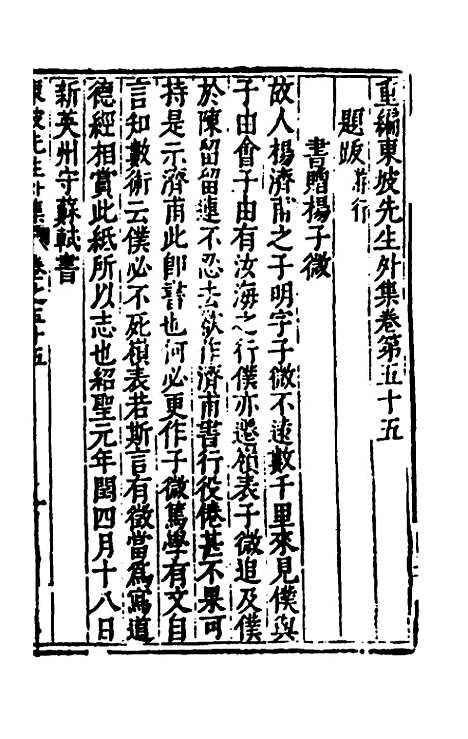 重編東坡先生外集卷第五十五
題跋 行
書贈楊子微
故人楊濟甫之子明字子微不遠數千里來見僕與
子由會子由有汝海之行僕亦遷嶺表子微追及僕
於陳留留連不忍去欲作濟甫書行役倦甚不果可
持是示濟甫此卽書也何必更作子微篤學有文自
言知數術云僕必不死嶺表若斯言有徵當爲寫道
德經相賞此紙所以志也紹聖元年閏四月十八日
新英州守蘇軾書
東坡先生外集 卷之五十五